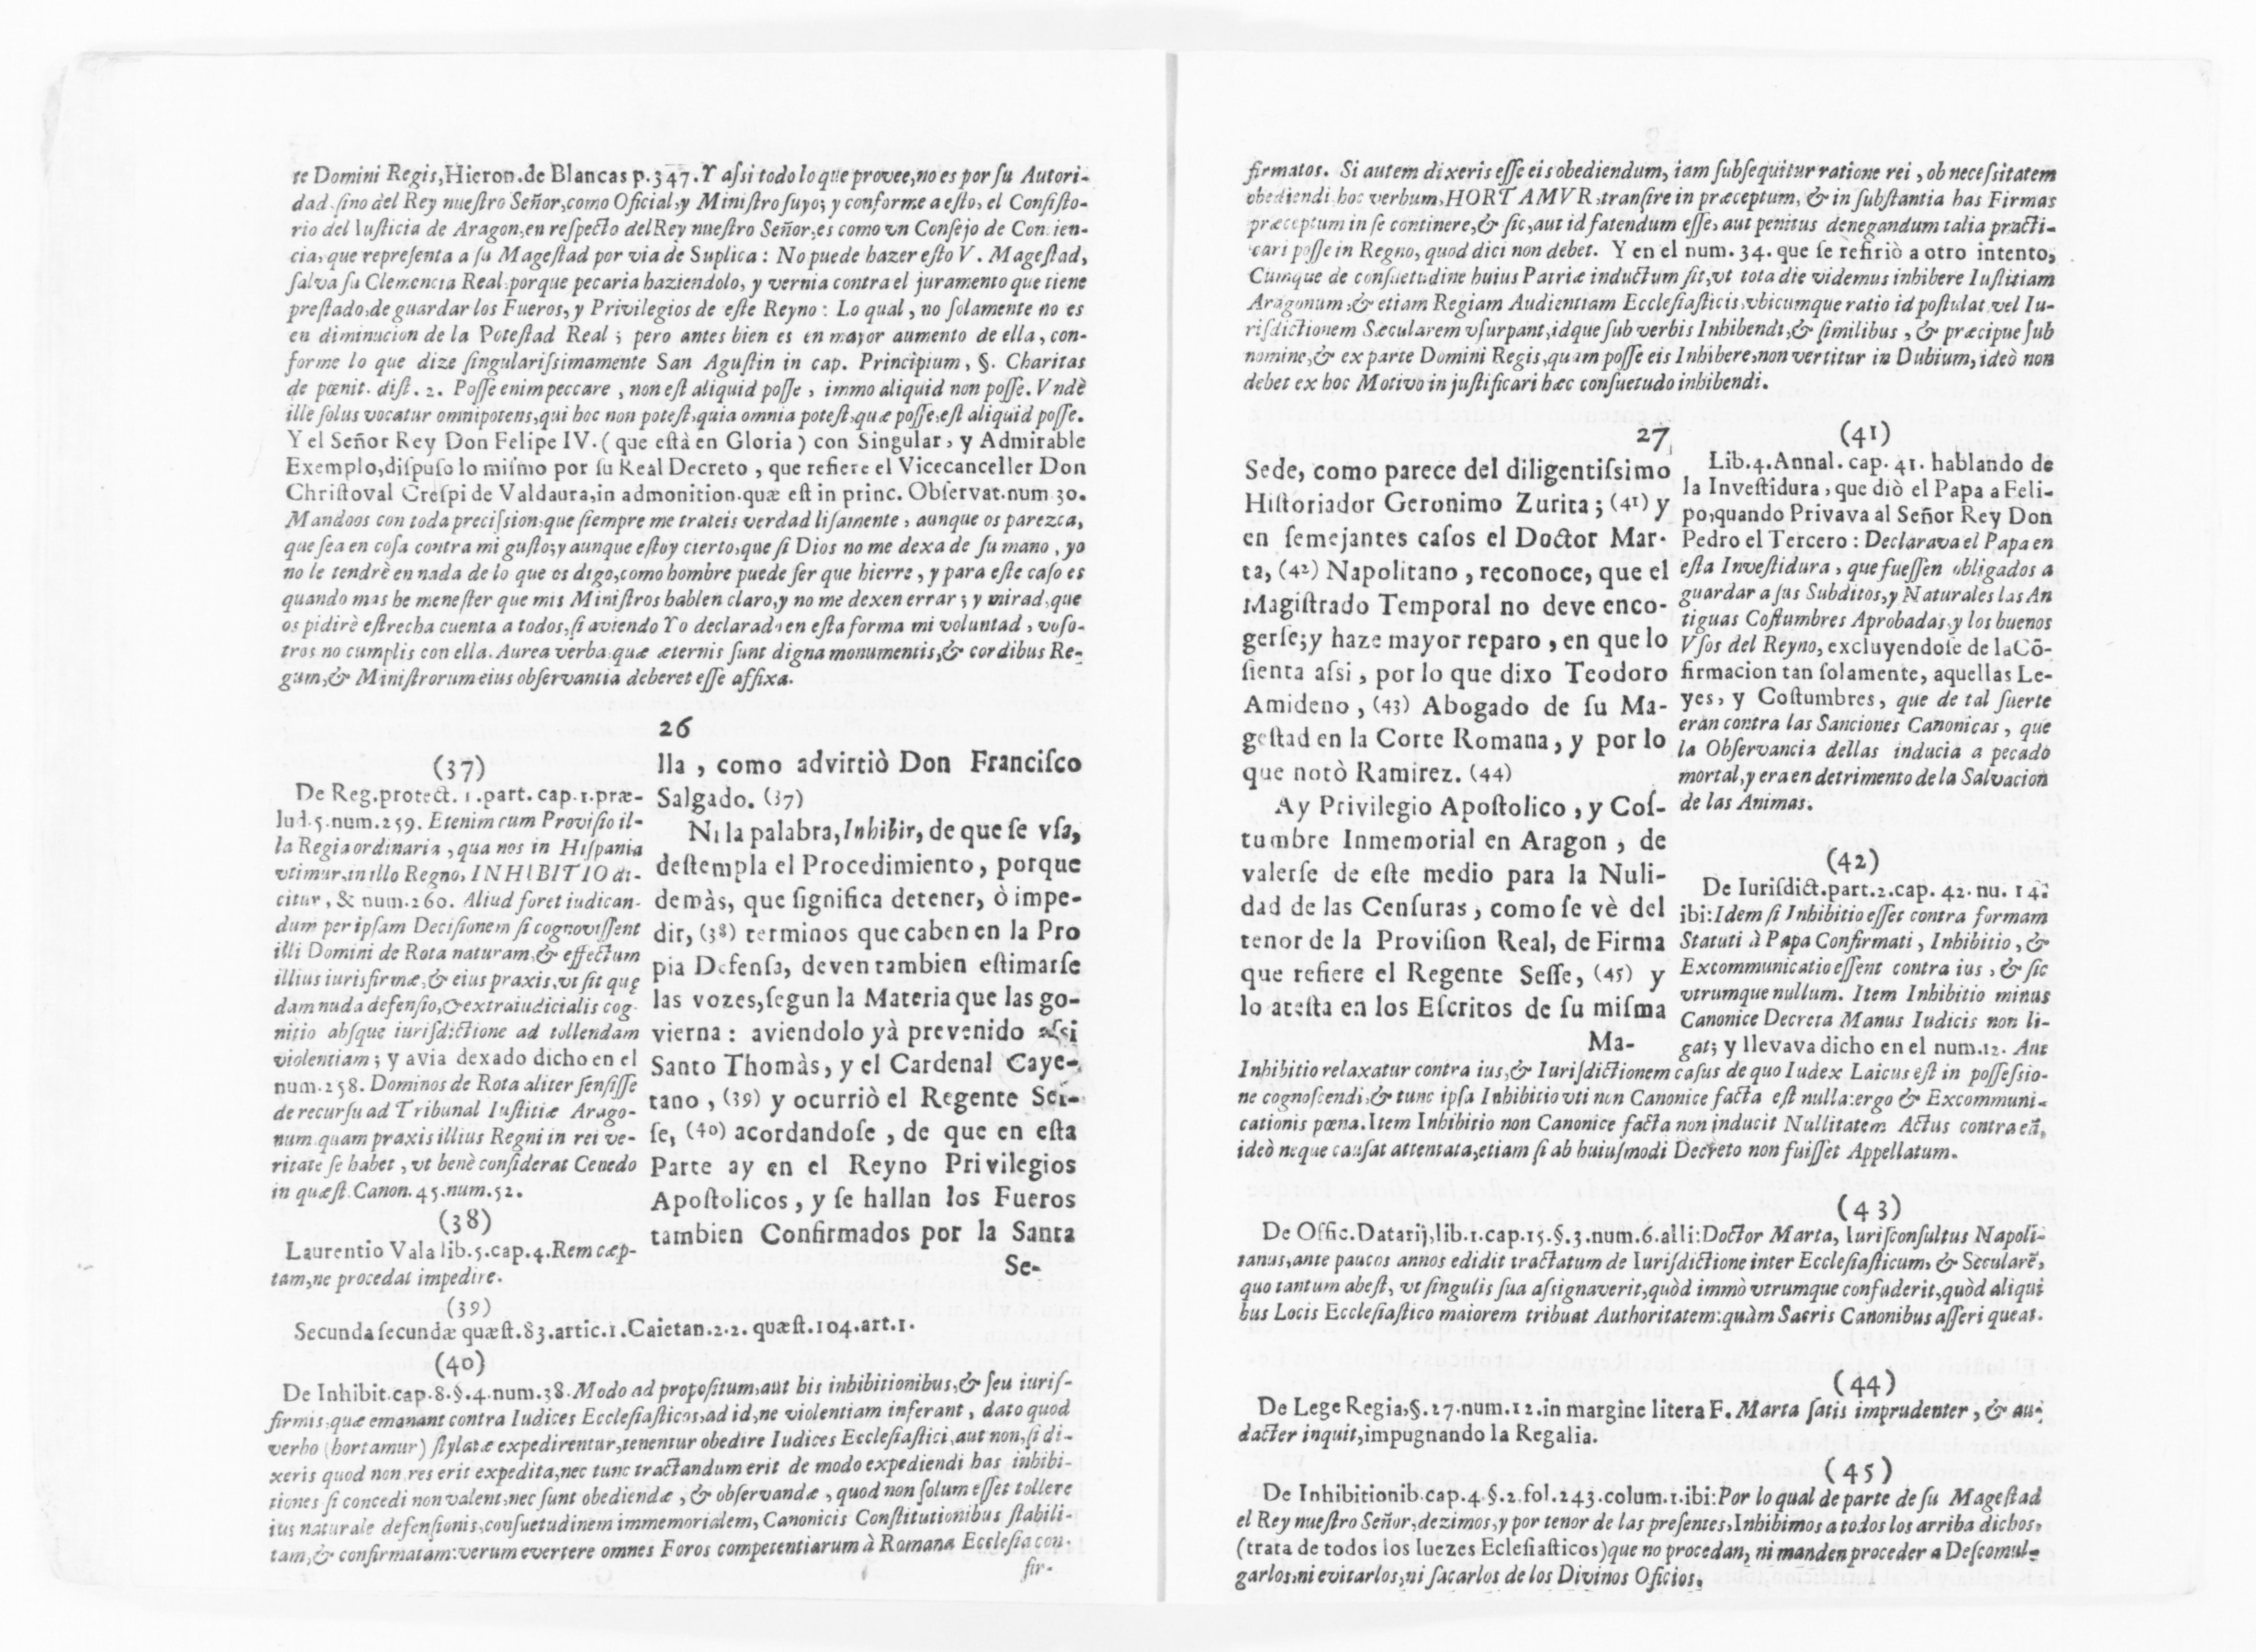 te Domini Regis, Hieron. de Blancas p. 347. Y aſsi todo lo que provee, no es por ſu Autori-
dad, ſino del Rey nueſtro Señor, como Oficial, y Miniſtro ſuyo; y conforme a eſto, el Conſiſto-
rio del Iuſticia de Aragon, en reſpecto del Rey nueſtro Señor, es como vn Conſejo de Conſcien-
cia, que repreſenta a ſu Mageſtad por via de Suplica: No puede hazer eſto V. Mageſtad,
ſalva ſu Clemencia Real, porque pecaria haziendolo, y vernia contra el juramento que tiene
preſtado, de guardar los Fueros, y Privilegios de eſte Reyno: Lo qual, no ſolamente no es
en diminucion de la Poteſtad Real; pero antes bien es en mayor aumento de ella, con-
forme lo que dize ſingulariſsimamente San Aguſtin in cap. Principium, §. Charitas
de pœnit. diſt. 2. Poſſe enim peccare, non eſt aliquid poſſe, immo aliquid non poſſe. Vndè
ille ſolus vocatur omnipotens, qui hoc non poteſt, quia omnia poteſt, quæ poſſe, eſt aliquid poſſe.
Y el Señor Rey Don Felipe IV. (que eſtà en Gloria) con Singular, y Admirable
Exemplo, diſpuſo lo miſmo por ſu Real Decreto, que refiere el Vicecanceller Don
Chriſtoval Creſpi de Valdaura, in admonition. quæ eſt in princ. Obſervat. num. 30.
Mandoos con toda preciſsion, que ſiempre me trateis verdad liſamente, aunque os parezca,
que ſea en coſa contra mi guſto; y aunque eſtoy cierto, que ſi Dios no me dexa de ſu mano, yo
no le tendrè en nada de lo que os digo, como hombre puede ſer que hierre, y para eſte caſo es
quando mas he meneſter que mis Miniſtros hablen claro, y no me dexen errar; y mirad, que
os pidirè eſtrecha cuenta a todos, ſi aviendo Yo declarado en eſta forma mi voluntad, voſo-
tros no cumplis con ella. Aurea verba, quæ æternis ſunt digna monumentis, & cordibus Re-
gum, & Miniſtrorum eius obſervantia deberet eſſe affixa.
26
lla, como advirtiò Don Franciſco
Salgado. (37)
Ni la palabra, Inhibir, de que ſe vſa,
deſtempla el Procedimiento, porque
demàs, que ſignifica detener, ò impe-
dir, (38) terminos que caben en la Pro
pia Defenſa, deven tambien eſtimarſe
las vozes, ſegun la Materia que las go-
vierna: aviendolo yà prevenido aſsi
Santo Thomàs, y el Cardenal Caye-
tano, (39) y ocurriò el Regente Seſ-
ſe, (40) acordandoſe, de que en eſta
Parte ay en el Reyno Privilegios
Apoſtolicos, y ſe hallan los Fueros
tambien Confirmados por la Santa
Se-
(37)
De Reg. protect. 1. part. cap. 1. præ-
lud. 5. num. 259. Etenim cum Proviſio il-
la Regia ordinaria, qua nos in Hiſpania
vtimur, in illo Regno, INHIBITIO di-
citur, & num. 260. Aliud foret iudican-
dum per ipſam Deciſionem ſi cognoviſſent
illi Domini de Rota naturam, & effectum
illius iuris firmæ, & eius praxis, vt ſit quę
dam nuda defenſio, & extraiudicialis cog-
nitio abſque iuriſdictione ad tollendam
violentiam; y avia dexado dicho en el
num. 258. Dominos de Rota aliter ſenſiſſe
de recurſu ad Tribunal Iuſtitiæ Arago-
num, quam praxis illius Regni in rei ve-
ritate ſe habet, vt benè conſiderat Cenedo
in quæſt. Canon. 45. num. 52.
(38)
Laurentio Vala lib. 5. cap. 4. Rem cæp-
tam, ne procedat impedire.
(39)
Secunda ſecundæ quæſt. 83. artic. 1. Caietan. 2. 2. quæſt. 104. art. 1.
(40)
De Inhibit. cap. 8. §. 4. num. 38. Modo ad propoſitum, aut his inhibitionibus, & ſeu iuriſ-
firmis, quæ emanant contra Iudices Eccleſiaſticos, ad id, ne violentiam inferant, dato quod
verbo (hortamur) ſtylatæ expedirentur, tenentur obedire Iudices Eccleſiaſtici, aut non, ſi di-
xeris quod non, res erit expedita, nec tunc tractandum erit de modo expediendi has inhibi-
tiones ſi concedi non valent, nec ſunt obediendæ, & obſervandæ, quod non ſolum eſſet tollere
ius naturale defenſionis, conſuetudinem immemorialem, Canonicis Conſtitutionibus ſtabili-
tam, & confirmatam: verum evertere omnes Foros competentiarum à Romana Eccleſia con-
fir-
firmatos. Si autem dixeris eſſe eis obediendum, iam ſubſequitur ratione rei, ob neceſsitatem
obediendi hoc verbum, HORTAMVR, tranſire in præceptum, & in ſubſtantia has Firmas
præceptum in ſe continere, & ſic, aut id fatendum eſſe, aut penitus denegandum talia practi-
cari poſſe in Regno, quod dici non debet. Y en el num. 34. que ſe refiriò a otro intento,
Cumque de conſuetudine huius Patriæ inductum ſit, vt tota die videmus inhibere Iuſtitiam
Aragonum, & etiam Regiam Audientiam Eccleſiaſticis, vbicumque ratio id poſtulat, vel Iu-
riſdictionem Sæcularem vſurpant, idque ſub verbis Inhibendi, & ſimilibus, & præcipue ſub
nomine, & ex parte Domini Regis, quam poſſe eis Inhibere, non vertitur in Dubium, ideò non
debet ex hoc Motivo injuſtificari hæc conſuetudo inhibendi.
27
Sede, como parece del diligentiſsimo
Hiſtoriador Geronimo Zurita; (41) y
en ſemejantes caſos el Doctor Mar-
ta, (42) Napolitano, reconoce, que el
Magiſtrado Temporal no deve enco-
gerſe; y haze mayor reparo, en que lo
ſienta aſsi, por lo que dixo Teodoro
Amideno, (43) Abogado de ſu Ma-
geſtad en la Corte Romana, y por lo
que notò Ramirez. (44)
Ay Privilegio Apoſtolico, y Coſ-
tumbre Inmemorial en Aragon, de
valerſe de eſte medio para la Nuli-
dad de las Cenſuras, como ſe vè del
tenor de la Proviſion Real, de Firma
que refiere el Regente Seſſe, (45) y
lo ateſta en los Eſcritos de ſu miſma
Ma-
(41)
Lib. 4. Annal. cap. 41. hablando de
la Inveſtidura, que diò el Papa a Feli-
po, quando Privava al Señor Rey Don
Pedro el Tercero: Declarava el Papa en
eſta Inveſtidura, que fueſſen obligados a
guardar a ſus Subditos, y Naturales las An
tiguas Coſtumbres Aprobadas, y los buenos
Vſos del Reyno, excluyendoſe de la Cõ-
firmacion tan ſolamente, aquellas Le-
yes, y Coſtumbres, que de tal ſuerte
eran contra las Sanciones Canonicas, que
la Obſervancia dellas inducia a pecado
mortal, y era en detrimento de la Salvacion
de las Animas.
(42)
De Iuriſdict. part. 2. cap. 42. nu. 14.
ibi: Idem ſi Inhibitio eſſet contra formam
Statuti à Papa Confirmati, Inhibitio, &
Excommunicatio eſſent contra ius, & ſic
vtrumque nullum. Item Inhibitio minus
Canonice Decreta Manus Iudicis non li-
gat; y llevava dicho en el num. 12. Aut
Inhibitio relaxatur contra ius, & Iuriſdictionem caſus de quo Iudex Laicus eſt in poſſeſsio-
ne cognoſcendi, & tunc ipſa Inhibitio vti non Canonice facta eſt nulla: ergo & Excommuni-
cationis pœna. Item Inhibitio non Canonice facta non inducit Nullitatem Actus contra eã,
ideò neque cauſat attentata, etiam ſi ab huiuſmodi Decreto non fuiſſet Appellatum.
(43)
De Offic. Datarij, lib. 1. cap. 15. §. 3. num. 6. alli: Doctor Marta, Iuriſconſultus Napoli-
tanus, ante paucos annos edidit tractatum de Iuriſdictione inter Eccleſiaſticum, & Secularẽ,
quo tantum abeſt, vt ſingulis ſua aſsignaverit, quòd immò vtrumque confuderit, quòd aliqui
bus Locis Eccleſiaſtico maiorem tribuat Authoritatem: quàm Sacris Canonibus aſſeri queat.
(44)
De Lege Regia, §. 27. num. 12. in margine litera F. Marta ſatis imprudenter, & au-
dacter inquit, impugnando la Regalia.
(45)
De Inhibitionib. cap. 4. §. 2. fol. 243. colum. 1. ibi: Por lo qual de parte de ſu Mageſtad
el Rey nueſtro Señor, dezimos, y por tenor de las preſentes, Inhibimos a todos los arriba dichos,
(trata de todos los Iuezes Ecleſiaſticos) que no procedan, ni manden proceder a Deſcomul-
garlos, ni evitarlos, ni ſacarlos de los Divinos Oficios.